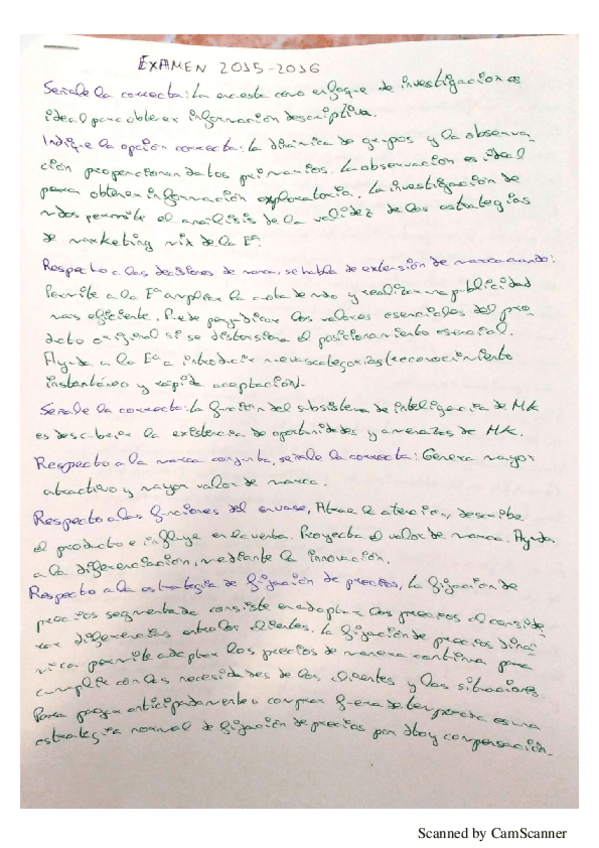 EXAMEN 2015-2016
Señale la correcta: La encuesta como enfoque de investigación es
ideal para obtener información descriptiva.
Indique la opción correcta: La dinámica de grupos y la observa-
ción proporcionan datos primarios. La observación es ideal
para obtener información exploratoria. La investigación de
mdos permite el análisis de la validez de las estrategias
de marketing mix de la Eª.
Respecto a las decisiones de marca, se habla de extensión de marca cuando:
Permite a la Eª ampliar la cuota de mdo y realizar una publicidad
mas eficiente. Puede perjudicar los valores esenciales del pro-
ducto original si se distorsiona el posicionamiento esencial.
Ayuda a la Eª a introducir nuevas categorías (reconocimiento
instantáneo y rápida aceptación).
Señale la correcta: La función del subsistema de inteligencia de MK
es descubrir la existencia de oportunidades y amenazas de MK.
Respecto a la marca conjunta, señale la correcta: Genera mayor
atractivo y mayor valor de marca.
Respecto a las funciones del envase, Atrae la atención, describe
el producto e influye en la venta. Proyecta el valor de marca. Ayuda
a la diferenciación, mediante la innovación.
Respecto a la estrategia de fijación de precios, la fijación de
precios segmentada consiste en adoptar los precios al conside-
rar diferencias entre los clientes. La fijación de precios diná-
mica permite adaptar los precios de manera continua para
cumplir con las necesidades de los clientes y las situaciones.
Para pagar anticipadamente o comprar fuera de temporada es una
estrategia normal de fijación de precios por dto y compensación.
Scanned by CamScanner